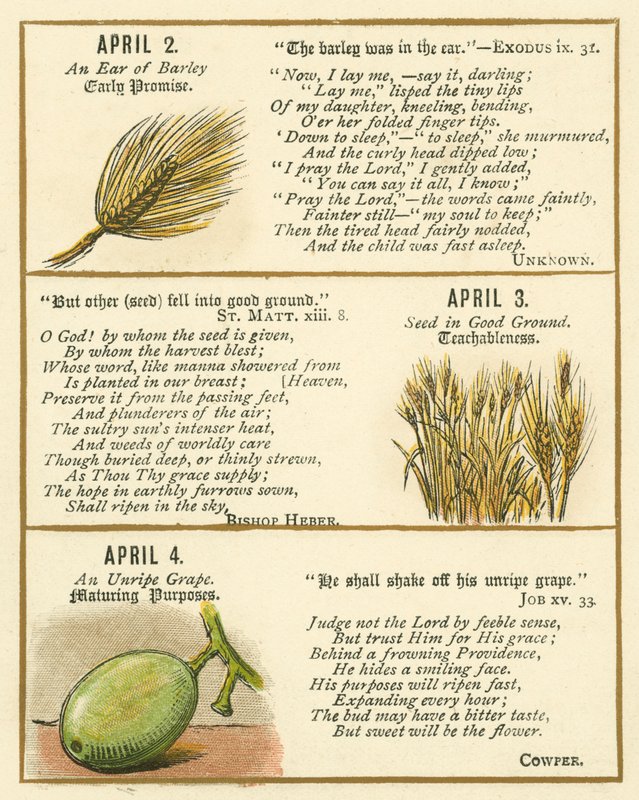 APRIL 2.
An Ear of Barley
Early Promise.
"The barley was in the ear."—EXODUS ix. 31.
"Now, I lay me, —say it, darling;
"Lay me," lisped the tiny lips
Of my daughter, kneeling, bending,
O'er her folded finger tips.
'Down to sleep,"—"to sleep," she murmured,
And the curly head dipped low;
"I pray the Lord," I gently added,
"You can say it all, I know;"
"Pray the Lord,"—the words came faintly,
Fainter still—"my soul to keep;"
Then the tired head fairly nodded,
And the child was fast asleep.
UNKNOWN.
"But other (seed) fell into good ground."
ST. MATT. xiii. 8.
O God! by whom the seed is given,
By whom the harvest blest;
Whose word, like manna showered from
Is planted in our breast; [Heaven,
Preserve it from the passing feet,
And plunderers of the air;
The sultry sun's intenser heat,
And weeds of worldly care
Though buried deep, or thinly strewn,
As Thou Thy grace supply;
The hope in earthly furrows sown,
Shall ripen in the sky.
BISHOP HEBER.
APRIL 3.
Seed in Good Ground.
Teachableness.
APRIL 4.
An Unripe Grape.
Maturing Purposes.
"He shall shake off his unripe grape."
JOB xv. 33.
Judge not the Lord by feeble sense,
But trust Him for His grace;
Behind a frowning Providence,
He hides a smiling face.
His purposes will ripen fast,
Expanding every hour;
The bud may have a bitter taste,
But sweet will be the flower.
COWPER.